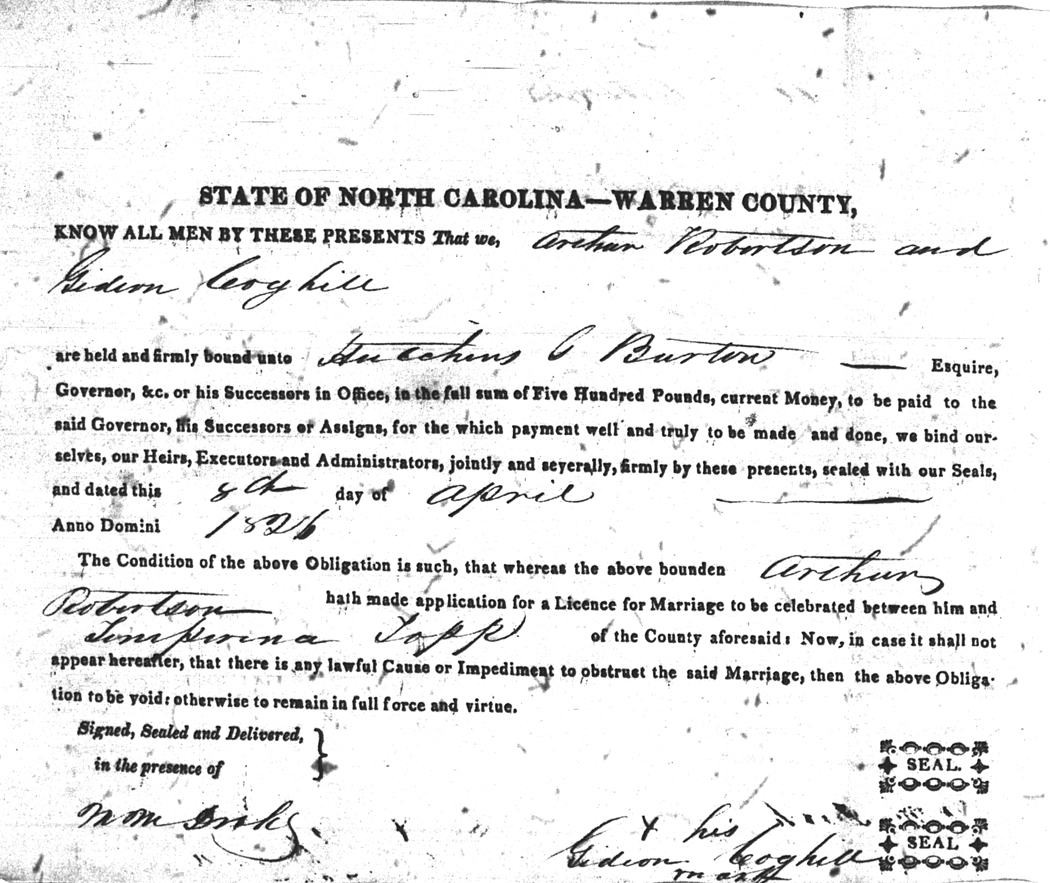 STATE OF NORTH CAROLINA—WARREN COUNTY,
KNOW ALL MEN BY THESE PRESENTS That we, Arthur Robertson and
Gideon Coghill
are held and firmly bound unto Hutchins G Burton — Esquire,
Governor, &c. or his Successors in Office, in the full sum of Five Hundred Pounds, current Money, to be paid to the
said Governor, his Successors or Assigns, for the which payment well and truly to be made and done, we bind our-
selves, our Heirs, Executors and Administrators, jointly and severally, firmly by these presents, sealed with our Seals,
and dated this 8th day of April
Anno Domini 1826
The Condition of the above Obligation is such, that whereas the above bounden Arthur
Robertson hath made application for a Licence for Marriage to be celebrated between him and
Topp of the County aforesaid: Now, in case it shall not
appear hereafter, that there is any lawful Cause or Impediment to obstruct the said Marriage, then the above Obliga-
tion to be void: otherwise to remain in full force and virtue.
Signed, Sealed and Delivered,
in the presence of
SEAL.
x his
SEAL
Gideon Coghill
mark